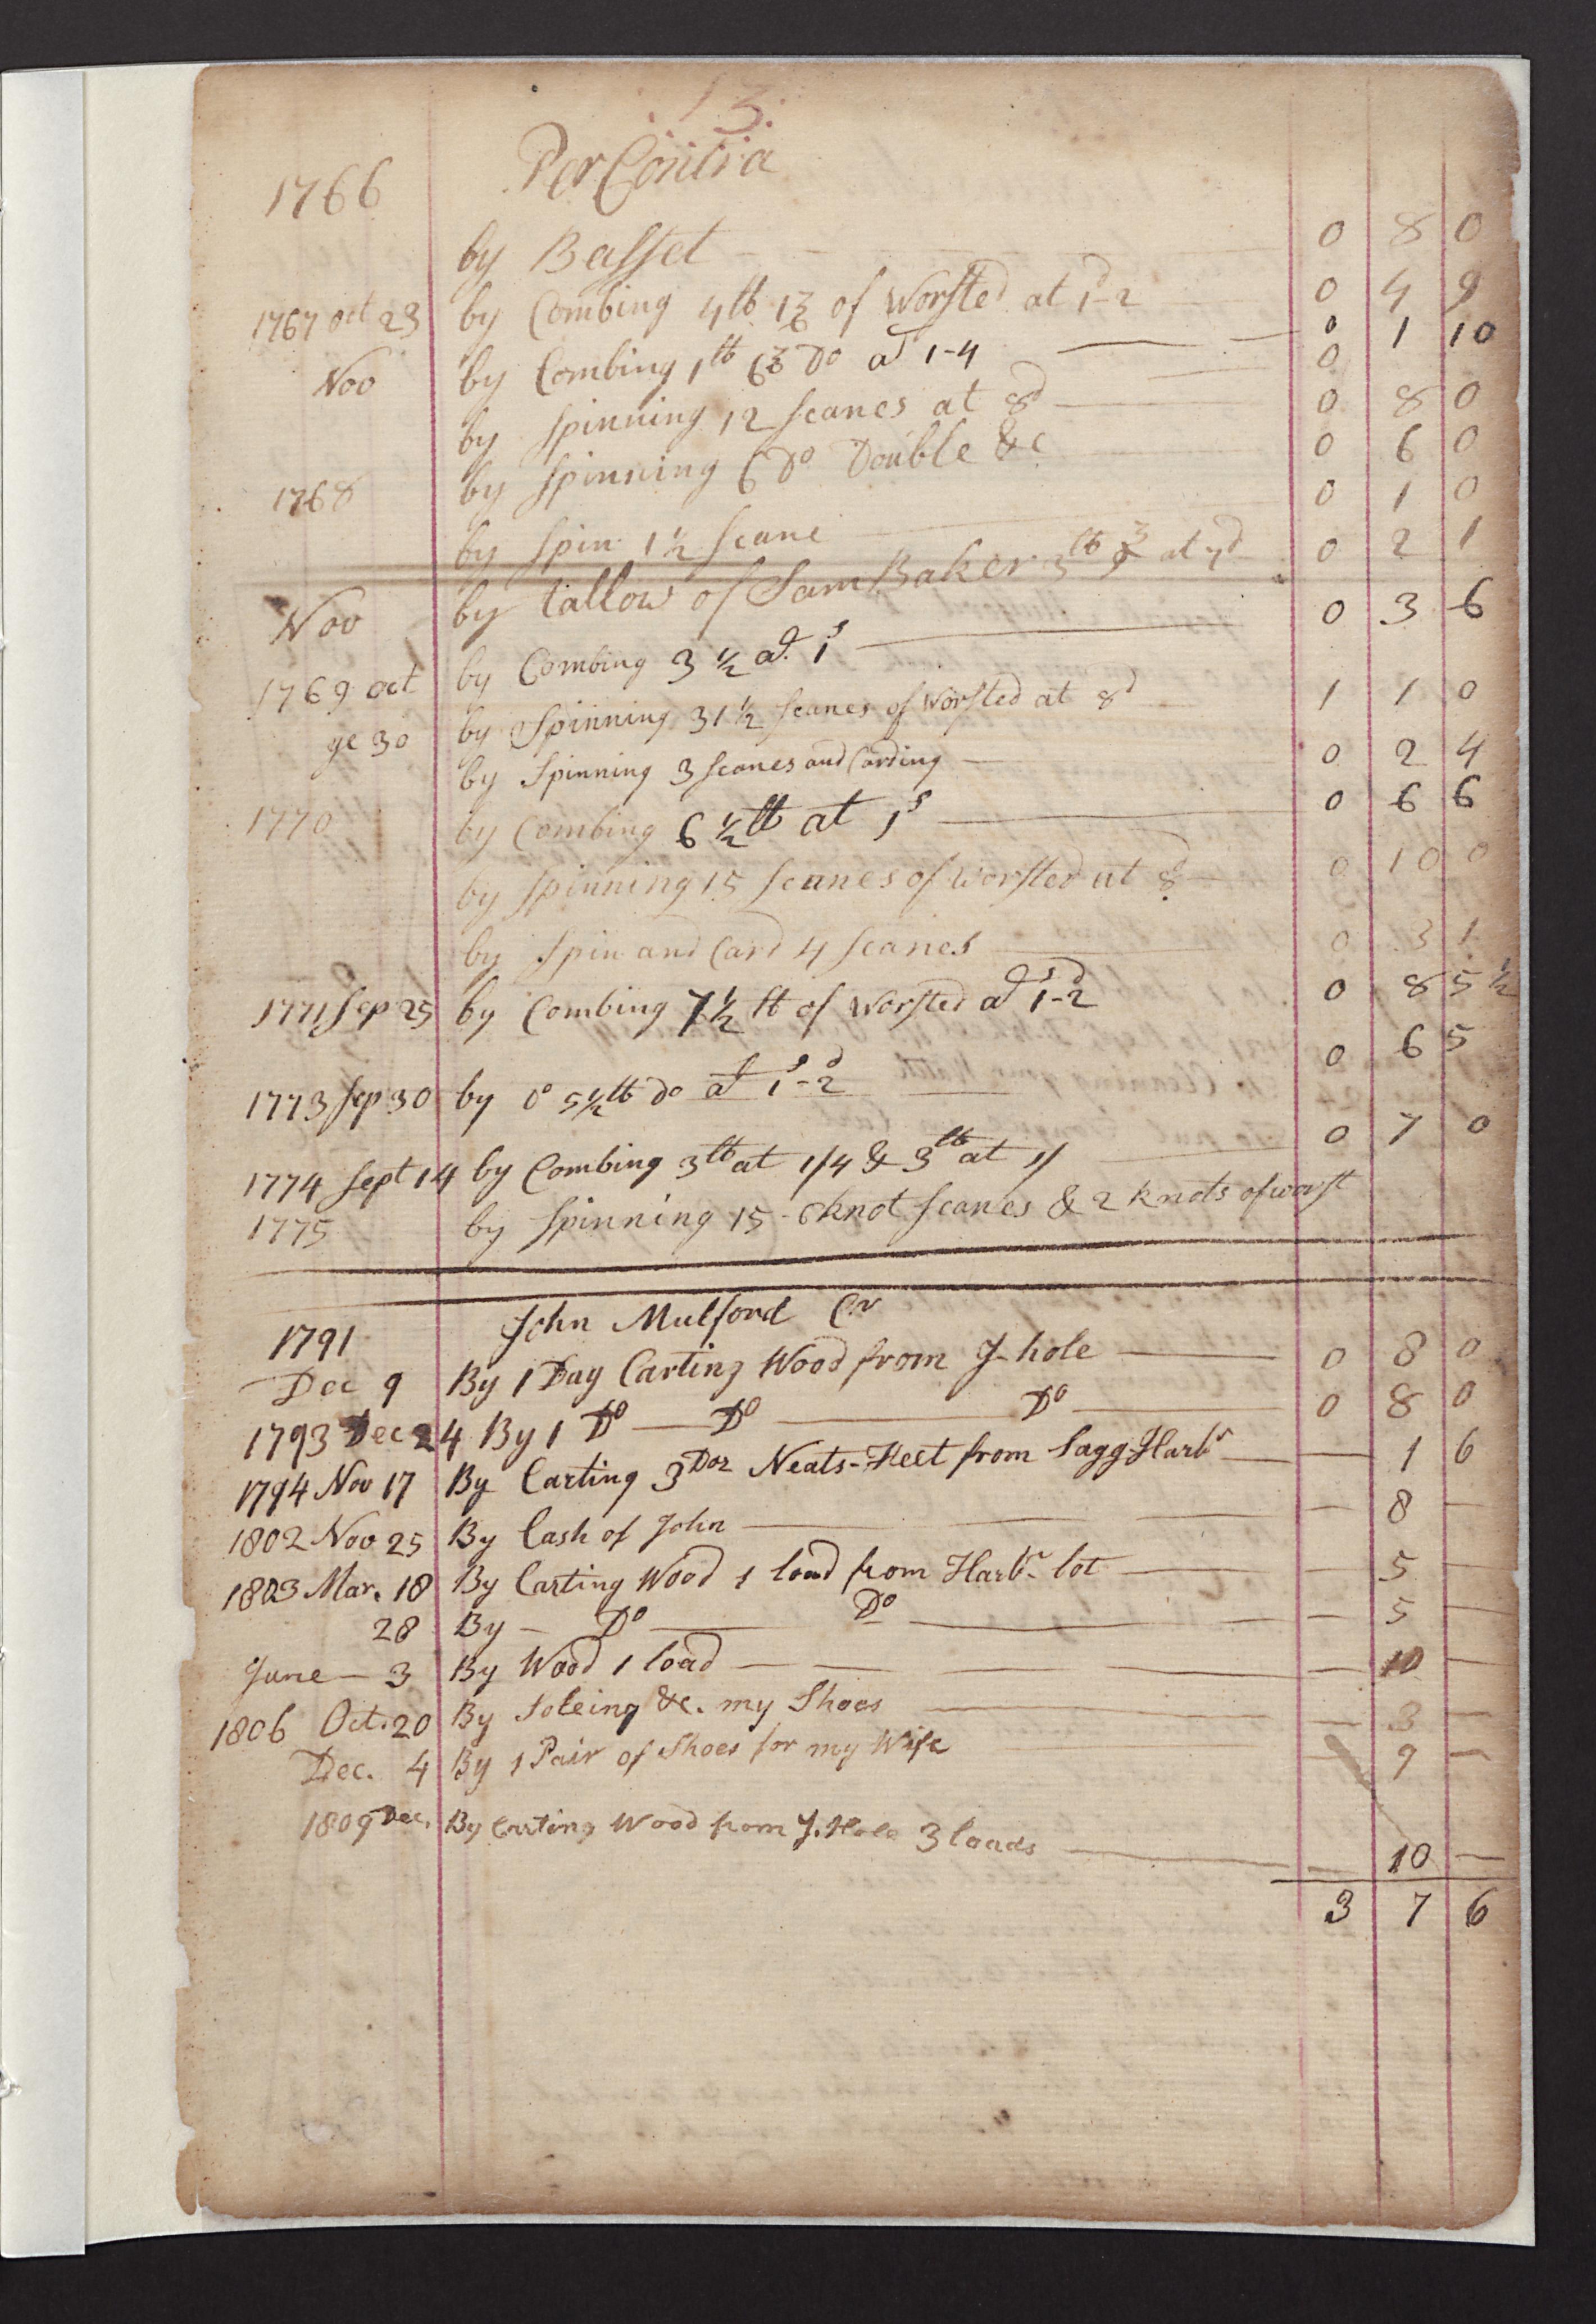 13.
1766 Per Contra
by Basset 0 8 0
1767 oct 23 by Combing 4lb 1℥ of Worsted at 1-2d 0 4 9
Nov by Combing 1lb 6℥ Do at 1-4 0 1 10
by Spinning 12 Scanes at 8d 0 8 0
by Spinning 6 Do Double &c 0 6 0
1768 by Spin 1½ Scane 0 1 0
Nov by tallow of Sam Baker 3lb at 7d 0 2 1
1769 oct by Combing 3½ at 1s 0 3 6
ye 30 by Spinning 31½ Scanes of Worsted at 8d 1 1 0
by Spinning 3 Scanes and Carding 0 2 4
1770 by Combing 6½ lb at 1s 0 6 6
by Spinning 15 Scanes of Worsted at 8d 0 10 0
by Spin and Card 4 Scanes 0 3 1
1771 Sep 25 by Combing 7½ lb of Worsted at 1s-2d 0 8 5½
1773 Sep 30 by Do 5½ lb Do at 1s-2d 0 6 5
1774 Sept 14 by Combing 3lb at 1/4 & 3lb at 1/ 0 7 0
1775 by Spinning 15-6 knot Scanes & 2 knots of worst
1791 John Mulford Cr
Dec 9 By 1 Day Carting Wood from J-hole 0 8 0
1793 Dec 24 By 1 Do — Do — Do 0 8 0
1794 Nov 17 By Carting 3 Doz Neats-Feet from Sagg-Harbr — 1 6
1802 Nov 25 By Cash of John — 8 —
1803 Mar. 18 By Carting Wood 1 load from Harbr lot — 5 —
28 By — Do — Do — 5 —
June — 3 By Wood 1 load — 10 —
1806 Oct. 20 By Soleing &c. my Shoes — 3 —
Dec. 4 By 1 Pair of Shoes for my Wife — 9 —
1809 Dec. By Carting Wood from J. Hole 3 loads — 10 —
3 7 6